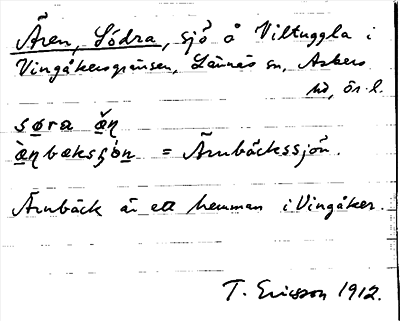 Ären, Södra, sjö å Viltuggla i
Vingåkersgränsen, Lännäs sn, Askers
hd, ör. l.
søra æ̌ṇ
æ̀ṇbæksʃö́ṇ = Ärnbäckssjön.
Ärnbäck är ett hemman i Vingåker.
T. Ericsson 1912.